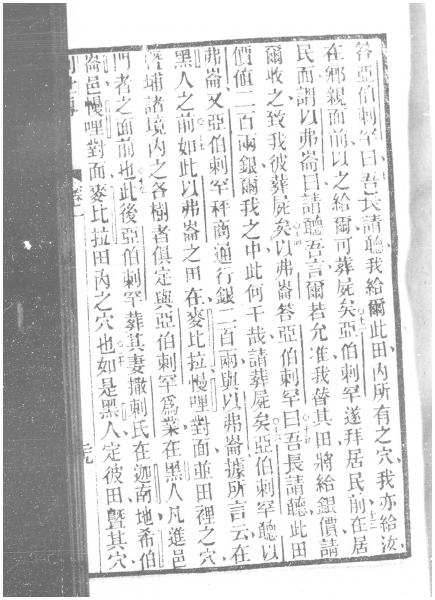 答亞伯剌罕曰吾長請聽我給爾此田內所有之穴我亦給汝
在鄉親面前以之給爾可葬屍矣亞伯剌罕遂拜居民前在居
民而謂以弗崙曰請聽吾言爾若允准我替其田將給銀價請
爾收之致我彼葬屍矣以弗崙答亞伯剌罕曰吾長請聽此田
價值二百兩銀爾我之中此何干哉請葬屍矣亞伯剌罕聽以
弗崙又亞伯剌罕秤商通行銀二百兩與以弗崙據所言云在
黑人之前如此以弗崙之田在麥比拉幔哩對面並田裡之穴
曁埔諸境內之各樹者俱定與亞伯剌罕為業在黑人凡進邑
門者之面前也此後亞伯剌罕葬其妻撒剌氏在迦南地希伯
崙邑幔哩對面麥比拉田內之穴也如是黑人定彼田曁其穴